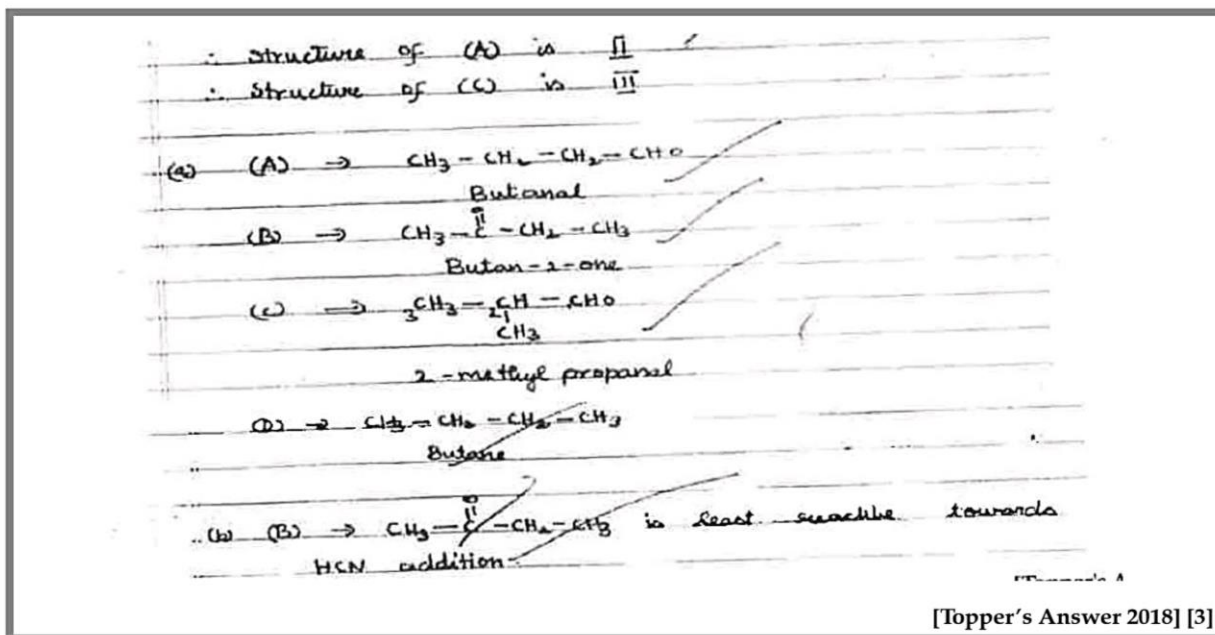 ∴ Structure of (A) is II
∴ Structure of (C) is III
(a) (A) → CH3 - CH2 - CH2 - CHO
Butanal
(B) → CH3 - C - CH2 - CH3
O
Butan-2-one
(c) → 3CH3 - 2CH - CHO
CH3
2-methyl propanal
(D) → CH3 - CH2 - CH2 - CH3
Butane
(b) (B) → CH3 - C - CH2 - CH3 is least towards
O
HCN addition
[Topper's Answer 2018] [3]